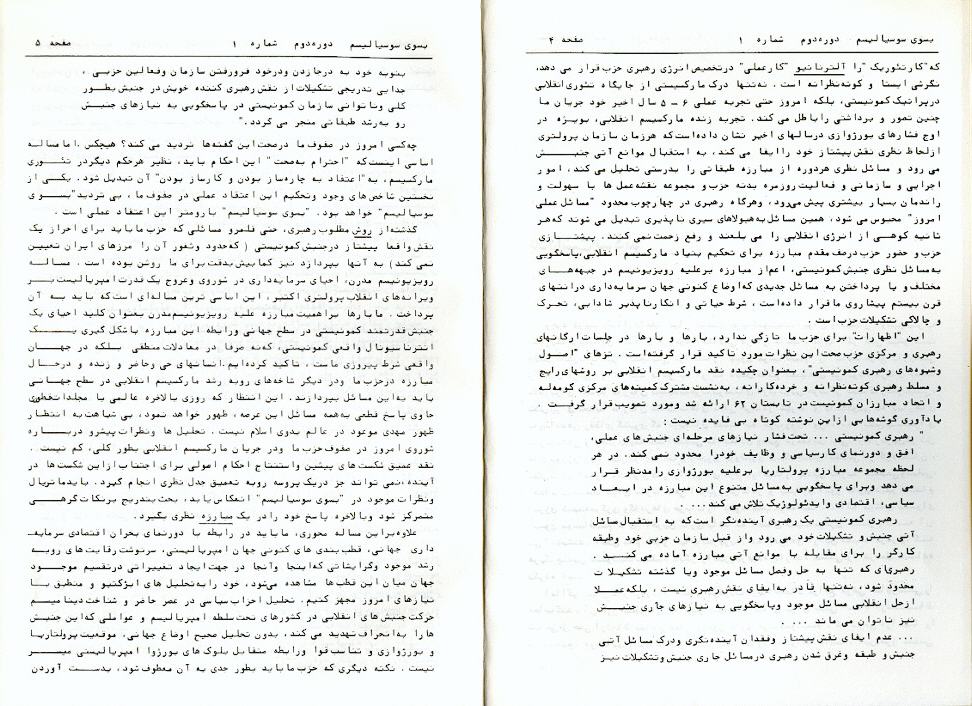 بسوی سوسیالیسم دوره دوم شماره ۱ صفحه ۴
که "کار تئوریک" را آلترناتیو "کار عملی" در تخصیص انرژی رهبری حزب قرار می دهد،
نگرشی ایستا و کوته‌نظرانه است. نه‌تنها درک مارکسیستی از جایگاه تئوری انقلابی
در پراتیک کمونیستی، بلکه امروز حتی تجربه عملی ۶ - ۵ سال اخیر خود جریان ما
چنین تصور و برداشتی را باطل می کند. تجربه زنده مارکسیسم انقلابی، بویژه در
اوج فشارهای بورژوازی در سالهای اخیر نشان داده است که هر زمان سازمان پرولتری
از لحاظ نظری نقش پیشتاز خود را ایفا می کند، به استقبال موانع آتی جنبش
می رود و مسائل نظری هر دوره از مبارزه طبقاتی را بدرستی تحلیل می کند، امور
اجرایی و سازمانی و فعالیت روزمره بدنه حزب و مجموعه نقشه عمل ها با سهولت و
راندمان بسیار بیشتری پیش می رود، و هرگاه رهبری در چهارچوب محدود "مسائل عملی
امروز" محبوس می شود، همین مسائل به هیولاهای سیری ناپذیری تبدیل می شوند که هر
ثانیه کوهی از انرژی انقلابی را می بلعند و رفع زحمت نمی کنند. پیشتازی
حزب و حضور حزب در صف مقدم مبارزه برای تحکیم بنیاد مارکسیسم انقلابی، پاسخگویی
به مسائل نظری جنبش کمونیستی، اعم از مبارزه بر علیه رویزیونیسم در جبهه‌های
مختلف و یا پرداختن به مسائل جدیدی که اوضاع کنونی جهان سرمایه داری در انتهای
قرن بیستم پیشاروی ما قرار داده است، شرط حیاتی و انکارناپذیر شادابی، تحرک
و چالاکی تشکیلات حزب است.
این "اظهارات" برای حزب ما تازگی ندارد، بارها و بارها در جلسات ارگانهای
رهبری و مرکزی حزب صحت این نظرات مورد تاکید قرار گرفته است. تزهای "اصول
وشیوه‌های رهبری کمونیستی"، بعنوان چکیده نقد مارکسیسم انقلابی بر روشهای رایج
و مسلط رهبری کوته‌نظرانه و خرده‌کارانه، به نشست مشترک کمیته‌های مرکزی کومه‌له
و اتحاد مبارزان کمونیست در تابستان ۶۲ ارائه شد و مورد تصویب قرار گرفت.
یادآوری گوشه‌هایی از این نوشته کوتاه بی فایده نیست:
" رهبری کمونیستی ... تحت فشار نیازهای مرحله‌ای جنبش های عملی،
افق و دورنمای کار سیاسی و وظایف خود را محدود نمی کند. در هر
لحظه مجموعه مبارزه پرولتاریا بر علیه بورژوازی را مدنظر قرار
می دهد و برای پاسخگویی به مسائل متنوع این مبارزه در ابعاد
سیاسی، اقتصادی و ایدئولوژیک تلاش می کند....
رهبری کمونیستی یک رهبری آینده‌نگر است که به استقبال مسائل
آتی جنبش و تشکیلات خود می رود و از قبل سازمان حزبی خود و طبقه
کارگر را برای مقابله با موانع آتی مبارزه آماده می کند.
رهبری‌ای که تنها به حل و فصل مسائل موجود و یا گذشته تشکیلات
محدود شود، نه‌تنها قادر به ایفای نقش رهبری نیست، بلکه عملا
از حل انقلابی مسائل موجود و پاسخگویی به نیازهای جاری جنبش
نیز ناتوان می ماند ....
... عدم ایفای نقش پیشتاز و فقدان آینده‌نگری و درک مسائل آتی
جنبش و طبقه و غرق شدن رهبری در مسائل جاری جنبش و تشکیلات نیز
بسوی سوسیالیسم دوره دوم شماره ۱ صفحه ۵
بنوبه خود به درجازدن و درخود فرورفتن سازمان و فعالین حزبی،
جدایی تدریجی تشکیلات از نقش رهبری کننده خویش در جنبش بطور
کلی و ناتوانی سازمان کمونیستی در پاسخگویی به نیازهای جنبش
رو به رشد طبقاتی منجر می گردد."
چه‌کسی امروز در صفوف ما در صحت این گفته‌ها تردید می کند؟ هیچکس. اما مساله
اساسی اینست که "احترام به صحت" این احکام باید، نظیر هر حکم دیگر در تئوری
مارکسیسم، به "اعتقاد به چاره‌ساز بودن و کارساز بودن" آن تبدیل شود. یکی از
نخستین شاخص های وجود و تحکیم این اعتقاد عملی در صفوف ما، بی تردید "بسوی
سوسیالیسم" خواهد بود. "بسوی سوسیالیسم" بارومتر این اعتقاد عملی است.
گذشته از روش مطلوب رهبری، حتی قلمرو مسائلی که حزب ما باید برای احراز یک
نقش واقعا پیشتاز در جنبش کمونیستی (که حدود و ثغور آن را مرزهای ایران تعیین
نمی کند) به آنها بپردازد نیز کمابیش بدقت برای ما روشن بوده است. مساله
رویزیونیسم مدرن، احیای سرمایه‌داری در شوروی و عروج یک قدرت امپریالیست بر
ویرانه‌های انقلاب پرولتری اکتبر، این اساسی ترین مساله‌ای است که باید به آن
پرداخت. ما بارها بر اهمیت مبارزه علیه رویزیونیسم مدرن بعنوان کلید احیای یک
جنبش قدرتمند کمونیستی در سطح جهانی و رابطه این مبارزه با شکل گیری یک
انترناسیونال واقعی کمونیستی، که نه صرفا در معادلات منطقی بلکه در جهان
واقعی شرط پیروزی ماست، تاکید کرده‌ایم. انسانهای حی و حاضر و زنده و در حال
مبارزه در حزب ما و در دیگر شاخه‌های رو به رشد مارکسیسم انقلابی در سطح جهانی
باید به این مسائل بپردازند. این انتظار که روزی بالاخره عالمی با مجلدات قطوری
حاوی پاسخ قطعی به همه مسائل این عرصه، ظهور خواهد نمود، بی شباهت به انتظار
ظهور مهدی موعود در عالم بدوی اسلام نیست. تحلیل ها و نظرات پیشرو درباره
شوروی امروز در صفوف حزب ما و در جریان مارکسیسم انقلابی بطور کلی، کم نیست.
نقد عمیق شکست های پیشین و استنتاج احکام اصولی برای اجتناب از این شکست ها در
آینده، نمی تواند جز در یک پروسه رو به تعمیق جدل نظری انجام گیرد. باید ماتریال
و نظرات موجود در "بسوی سوسیالیسم" انعکاس یابد، بحث بتدریج بر نکات گرهی
متمرکز شود و بالاخره پاسخ خود را در یک مبارزه نظری بگیرد.
علاوه بر این مساله محوری، ما باید در رابطه با دورنمای بحران اقتصادی سرمایه
داری جهانی، قطب بندی های کنونی جهان امپریالیستی، سرنوشت رقابت های رو به
رشد موجود و گرایشاتی که اینجا و آنجا در جهت ایجاد تغییراتی در تقسیم موجود
جهان میان این قطب ها مشاهده می شود، خود را به تحلیل های ابژکتیو و منطبق با
نیازهای امروز مجهز کنیم. تحلیل احزاب سیاسی در عصر حاضر و شناخت دینامیسم
حرکت جنبش های انقلابی در کشورهای تحت سلطه امپریالیسم و عواملی که این جنبش
ها را به انحراف تهدید می کند، بدون تحلیل صحیح اوضاع جهانی، موقعیت پرولتاریا
و بورژوازی و تناسب قوا و رابطه متقابل بلوک های بورژوا امپریالیستی میسر
نیست. نکته دیگری که حزب ما باید بطور جدی به آن معطوف شود، بدست آوردن